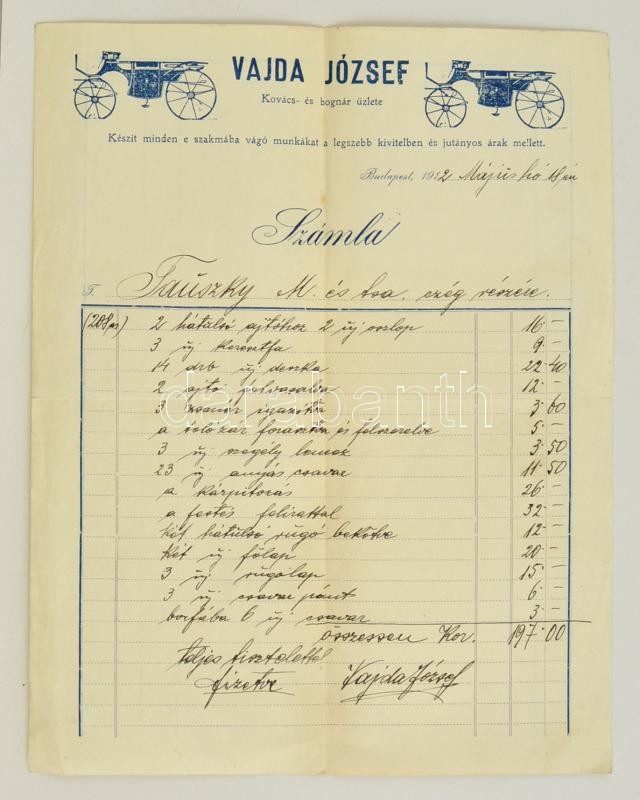 VAJDA JÓZSEF
Kovács- és bognár üzlete
Készit minden e szakmába vágó munkákat a legszebb kivitelben és jutányos árak mellett.
Budapest, 1912 Május hó 18 án
Számla
T. Tauszky M. és tsa. czég részére.
(208 sz) 2 hátulsó ajtóhoz 2 új oszlop 16 –
3 új keresztfa 9 –
14 drb új deszka 22 40
2 ajtó felvasalva 12 –
3 zsanér igazitva 3 60
a tolózár forasztva és felszerelve 5 –
3 új szegély lemez 3 50
23 új anyás csavar 11 50
a kárpitozás 26 –
a festés felirattal 32 –
két hátulsó rugó bekötve 12 –
két új főlap 20 –
3 új rugólap 15 –
3 új csavar pánt 6 –
6 új csavar 3 –
összessen Kor. 197 00
teljes tisztelettel
fizetve Vajda József
darabanth